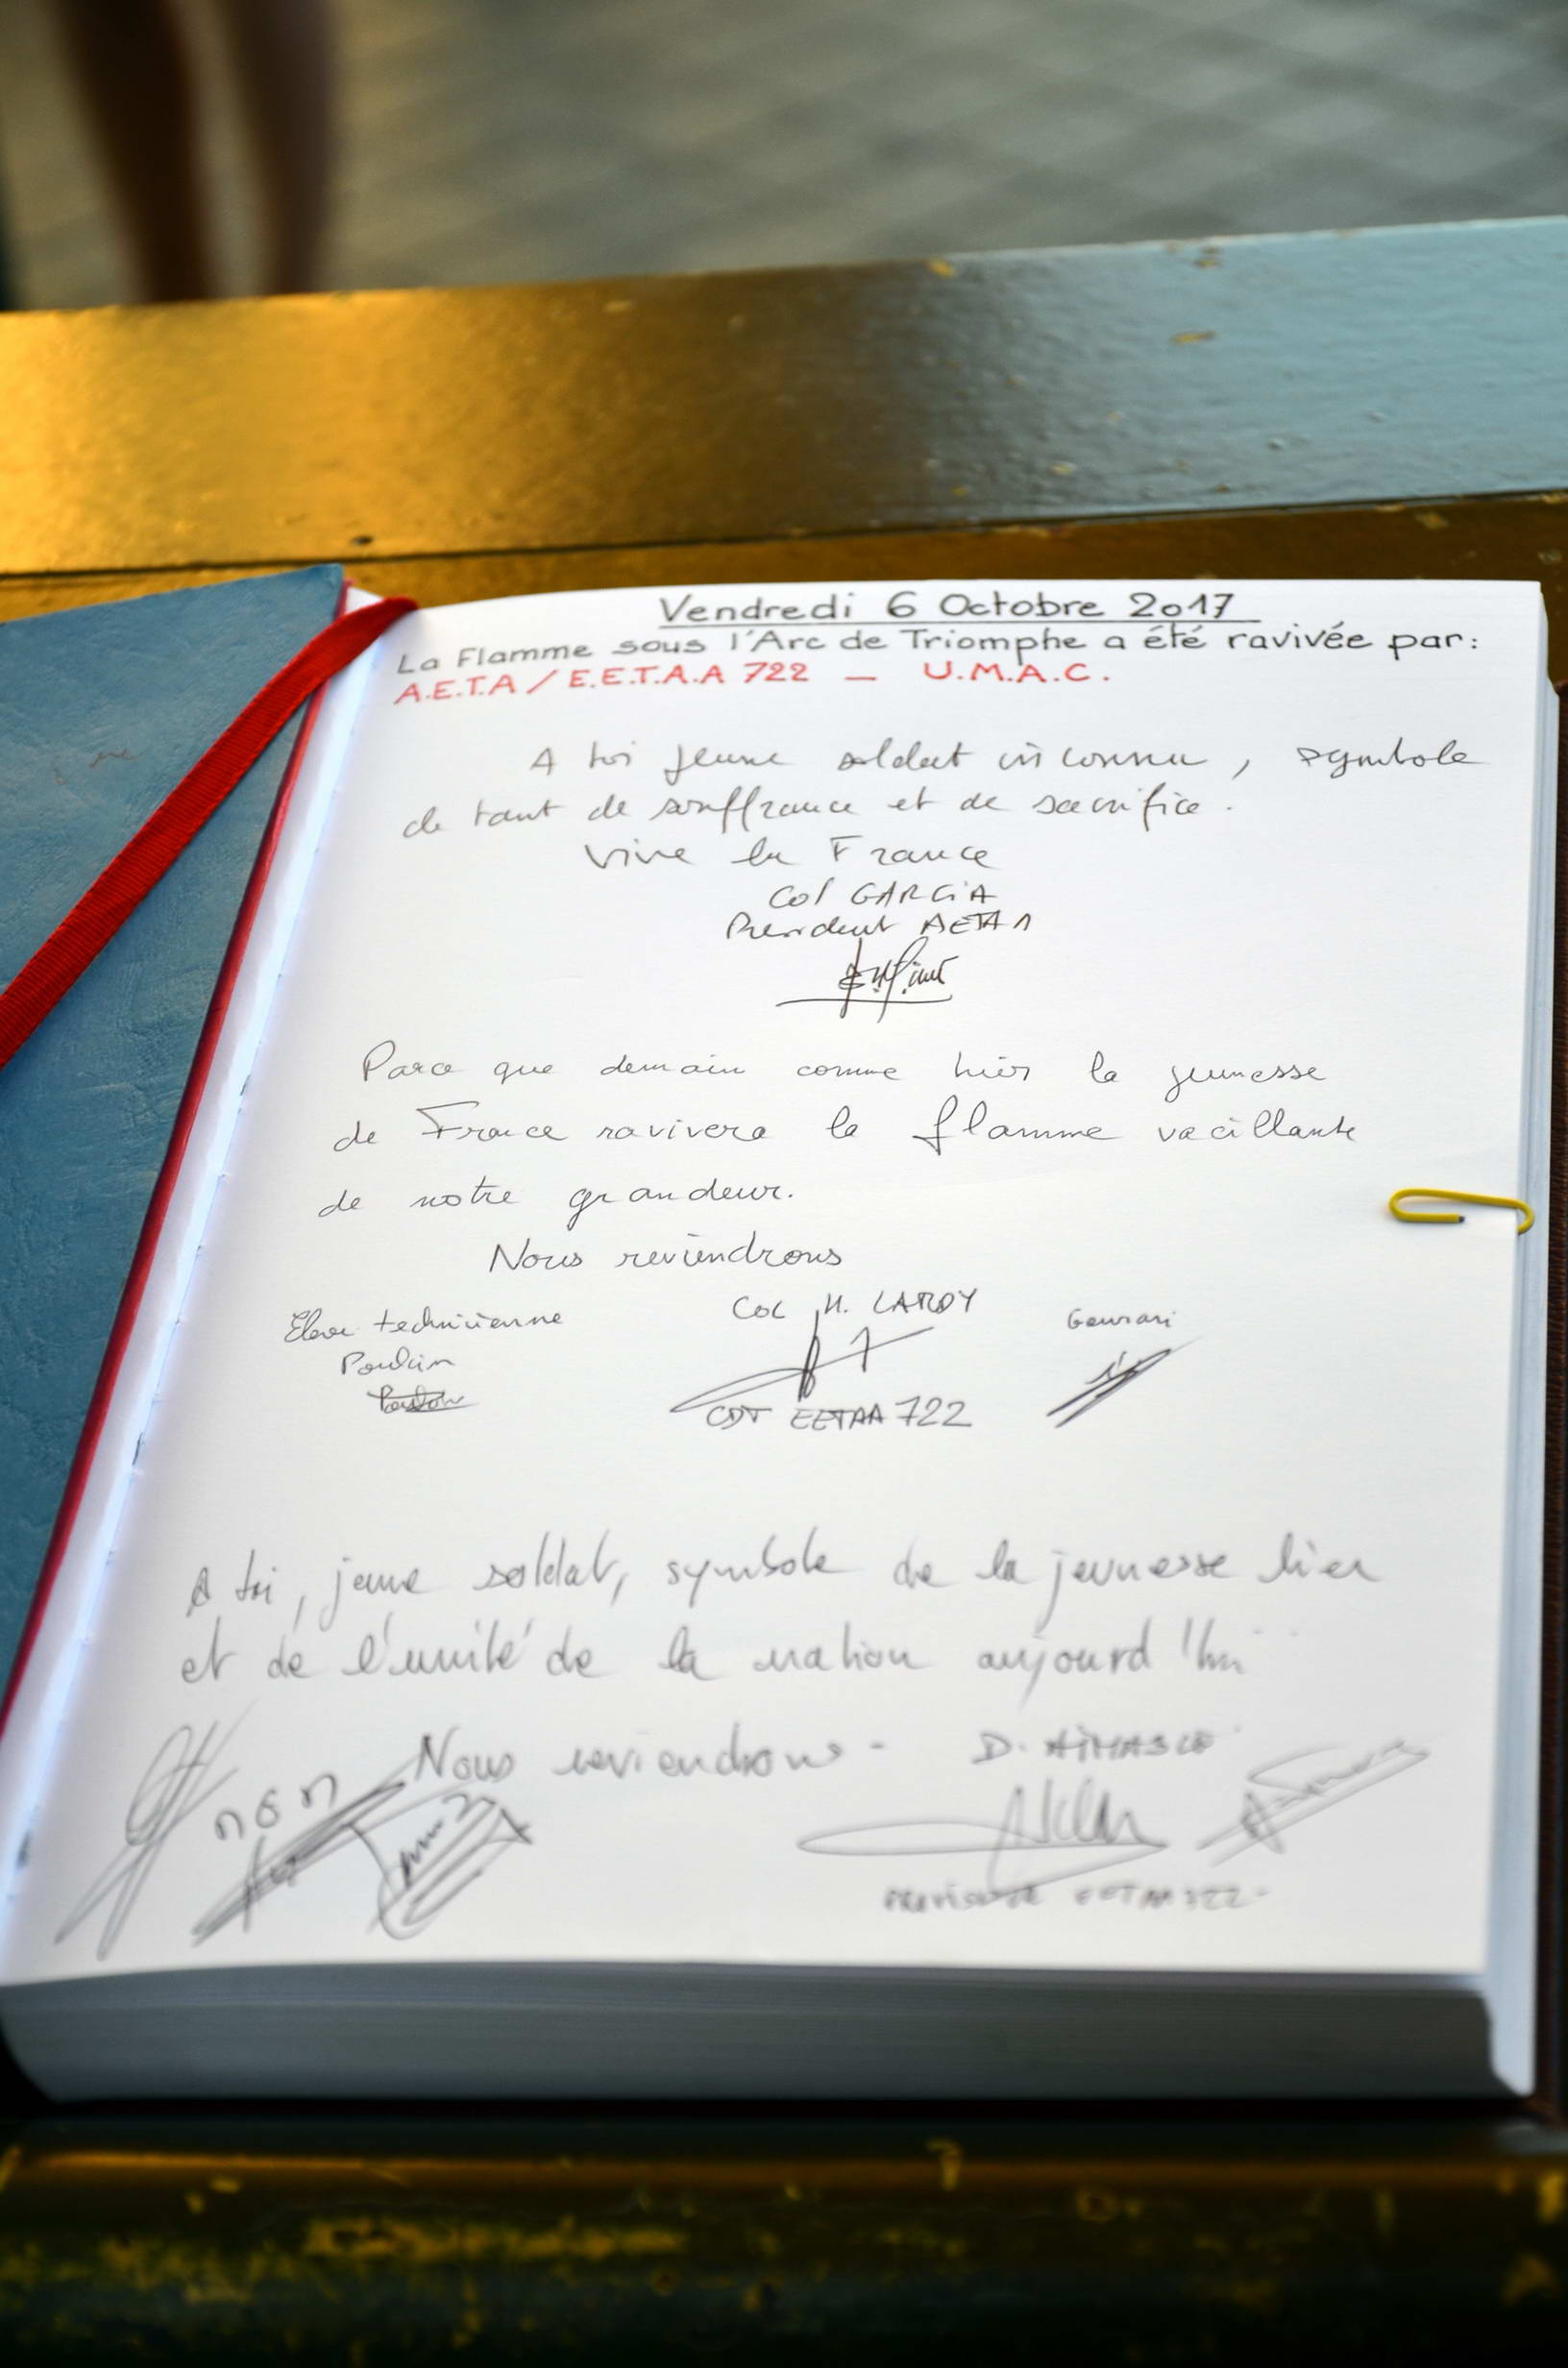 Vendredi 6 Octobre 2017
La Flamme sous l'Arc de Triomphe a été ravivée par:
A.E.T.A / E.E.T.A.A 722 _ U.M.A.C.
A toi jeune soldat inconnu, symbole
de tant de souffrance et de sacrifice.
Vive la France
Col GARCIA
President AETA
Parce que demain comme hier la jeunesse
de France ravivera la flamme vacillante
de notre grandeur.
Nous reviendrons
Eleve technicienne
Poulain
Col H. LAROY
CDT EETAA 722
Gourari
A toi, jeune soldat, symbole de la jeunesse hier
et de l'unité de la nation aujourd'hui
Nous reviendrons - D.
EETAA 722